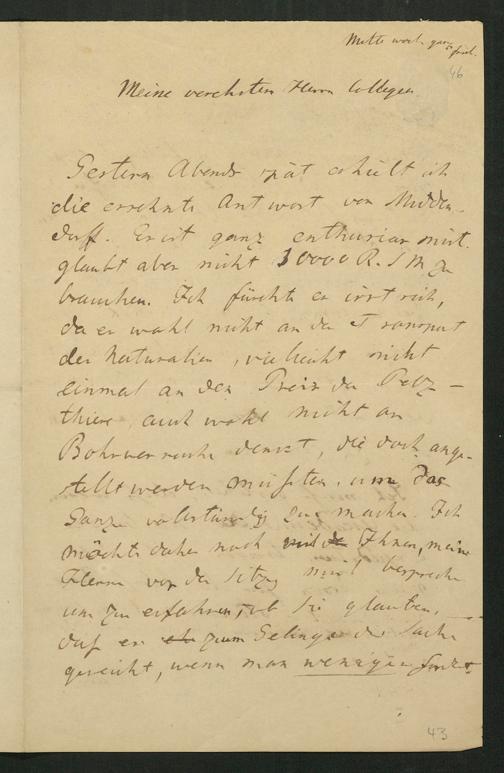 Mittwoch ganz früh.
46
Meine verehrten Herrn Collegen
Gestern Abends spät erhielt ich
die ersehnte Antwort von Midden-
dorff. Er ist ganz enthusiasmirt.
glaubt aber nicht 10000 R. S M zu
brauchen. Ich fürchte er irrt sich,
da er wohl nicht an den Transport
der Naturalien, vielleicht nicht
einmal an den Preis der Pelz-
thiere, auch wohl nicht an
Bohrversuche denkt, die doch ange-
stellt werden müssten, um das
Ganze vollständig zu machen. Ich
möchte daher noch mit Ihnen, meine
Herrn vor der Sitzung mich besprechen
um zu erfahren, ob Sie glauben,
daß es zum Gelingen der Sache
gereicht, wenn man weniger fordert
43